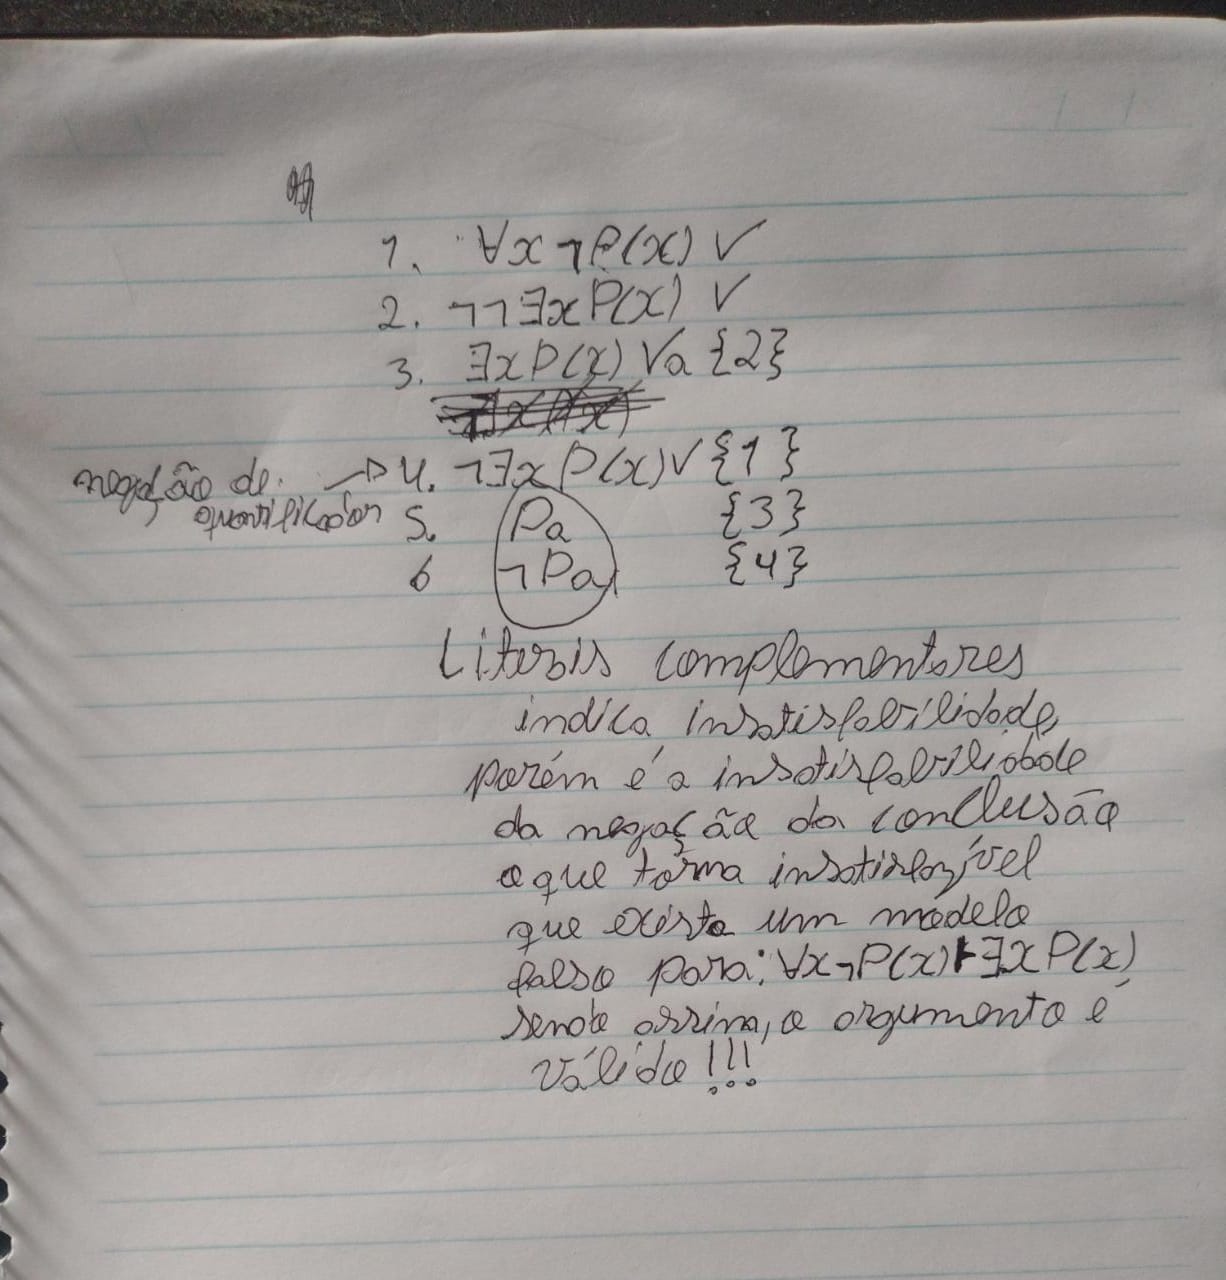 1. ∀x¬P(x) ✓
2. ¬¬∃xP(x) ✓
3. ∃xP(x) ✓a {2}
negação de → 4. ¬∃xP(x) ✓ {1}
quantificador 5. Pa {3}
6 ¬Pa {4}
Literais complementares
indica insatisfabilidade,
porém é a insatisfabilidade
da negação da conclusão
o que torna insatisfazível
que exista um modelo
falso para: ∀x¬P(x) ⊢ ∃xP(x)
sendo assim, o argumento é
válido!!!